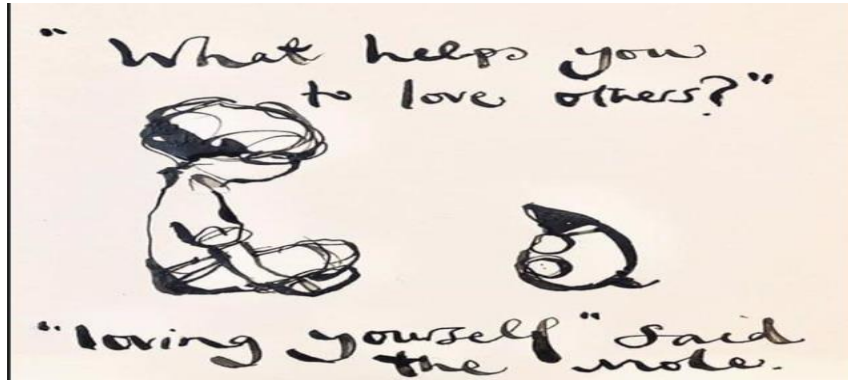 "What helps you
to love others?"
"loving yourself" said
the mole.